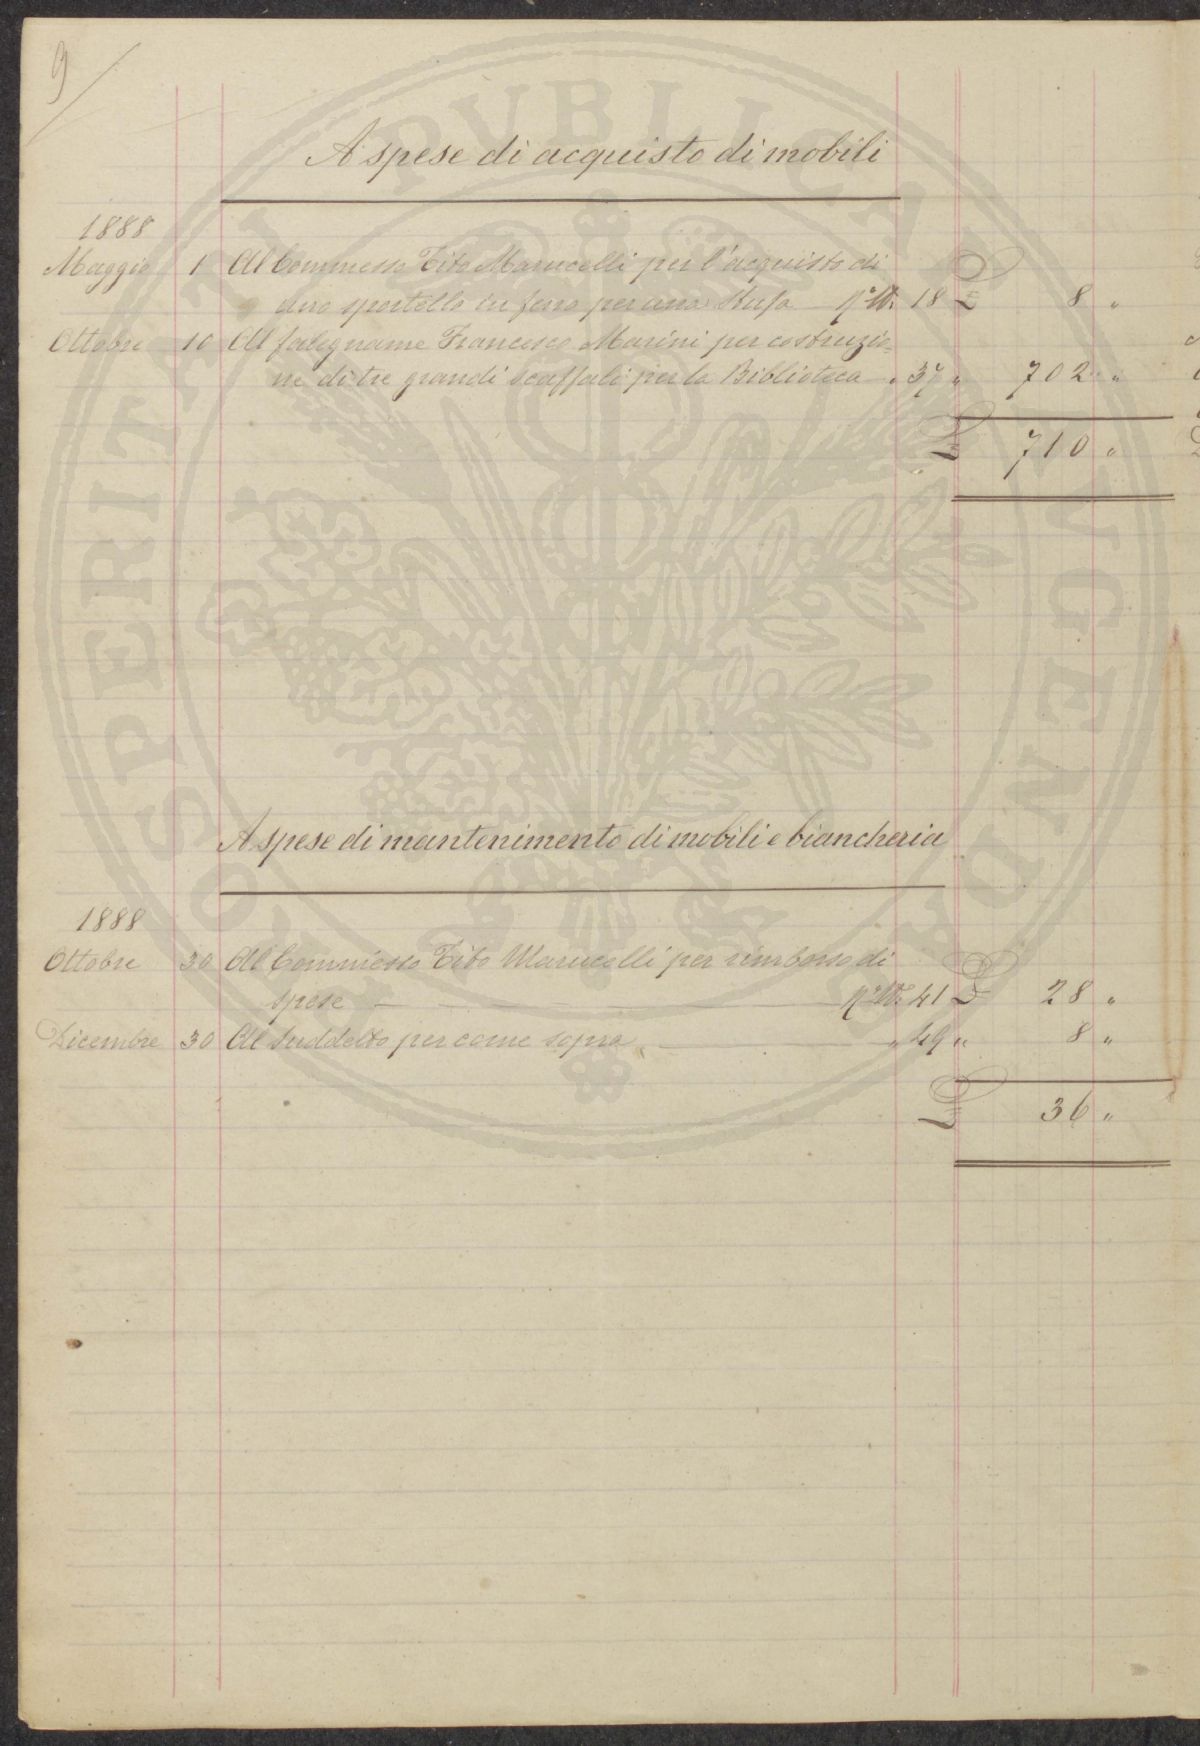 9
A spese di acquisto di mobili
1888
Maggio 1 Al Commesso Tito Marucelli per l'acquisto di
uno sportello in ferro per una Stufa N° 18 £ 8 "
Ottobre 10 Al falegname Francesco Marini per costruzio=
ne di tre grandi scaffali per la Biblioteca " 37 " 702 "
£ 710 "
A spese di mantenimento di mobili e biancheria
1888
Ottobre 30 Al Commesso Tito Marucelli per rimborso di
spese N° 41 £ 28 "
Dicembre 30 Al Suddetto per come sopra " 49 " 8 "
£ 36 "
PROSPERITATI PVBLICAE AVGENDAE